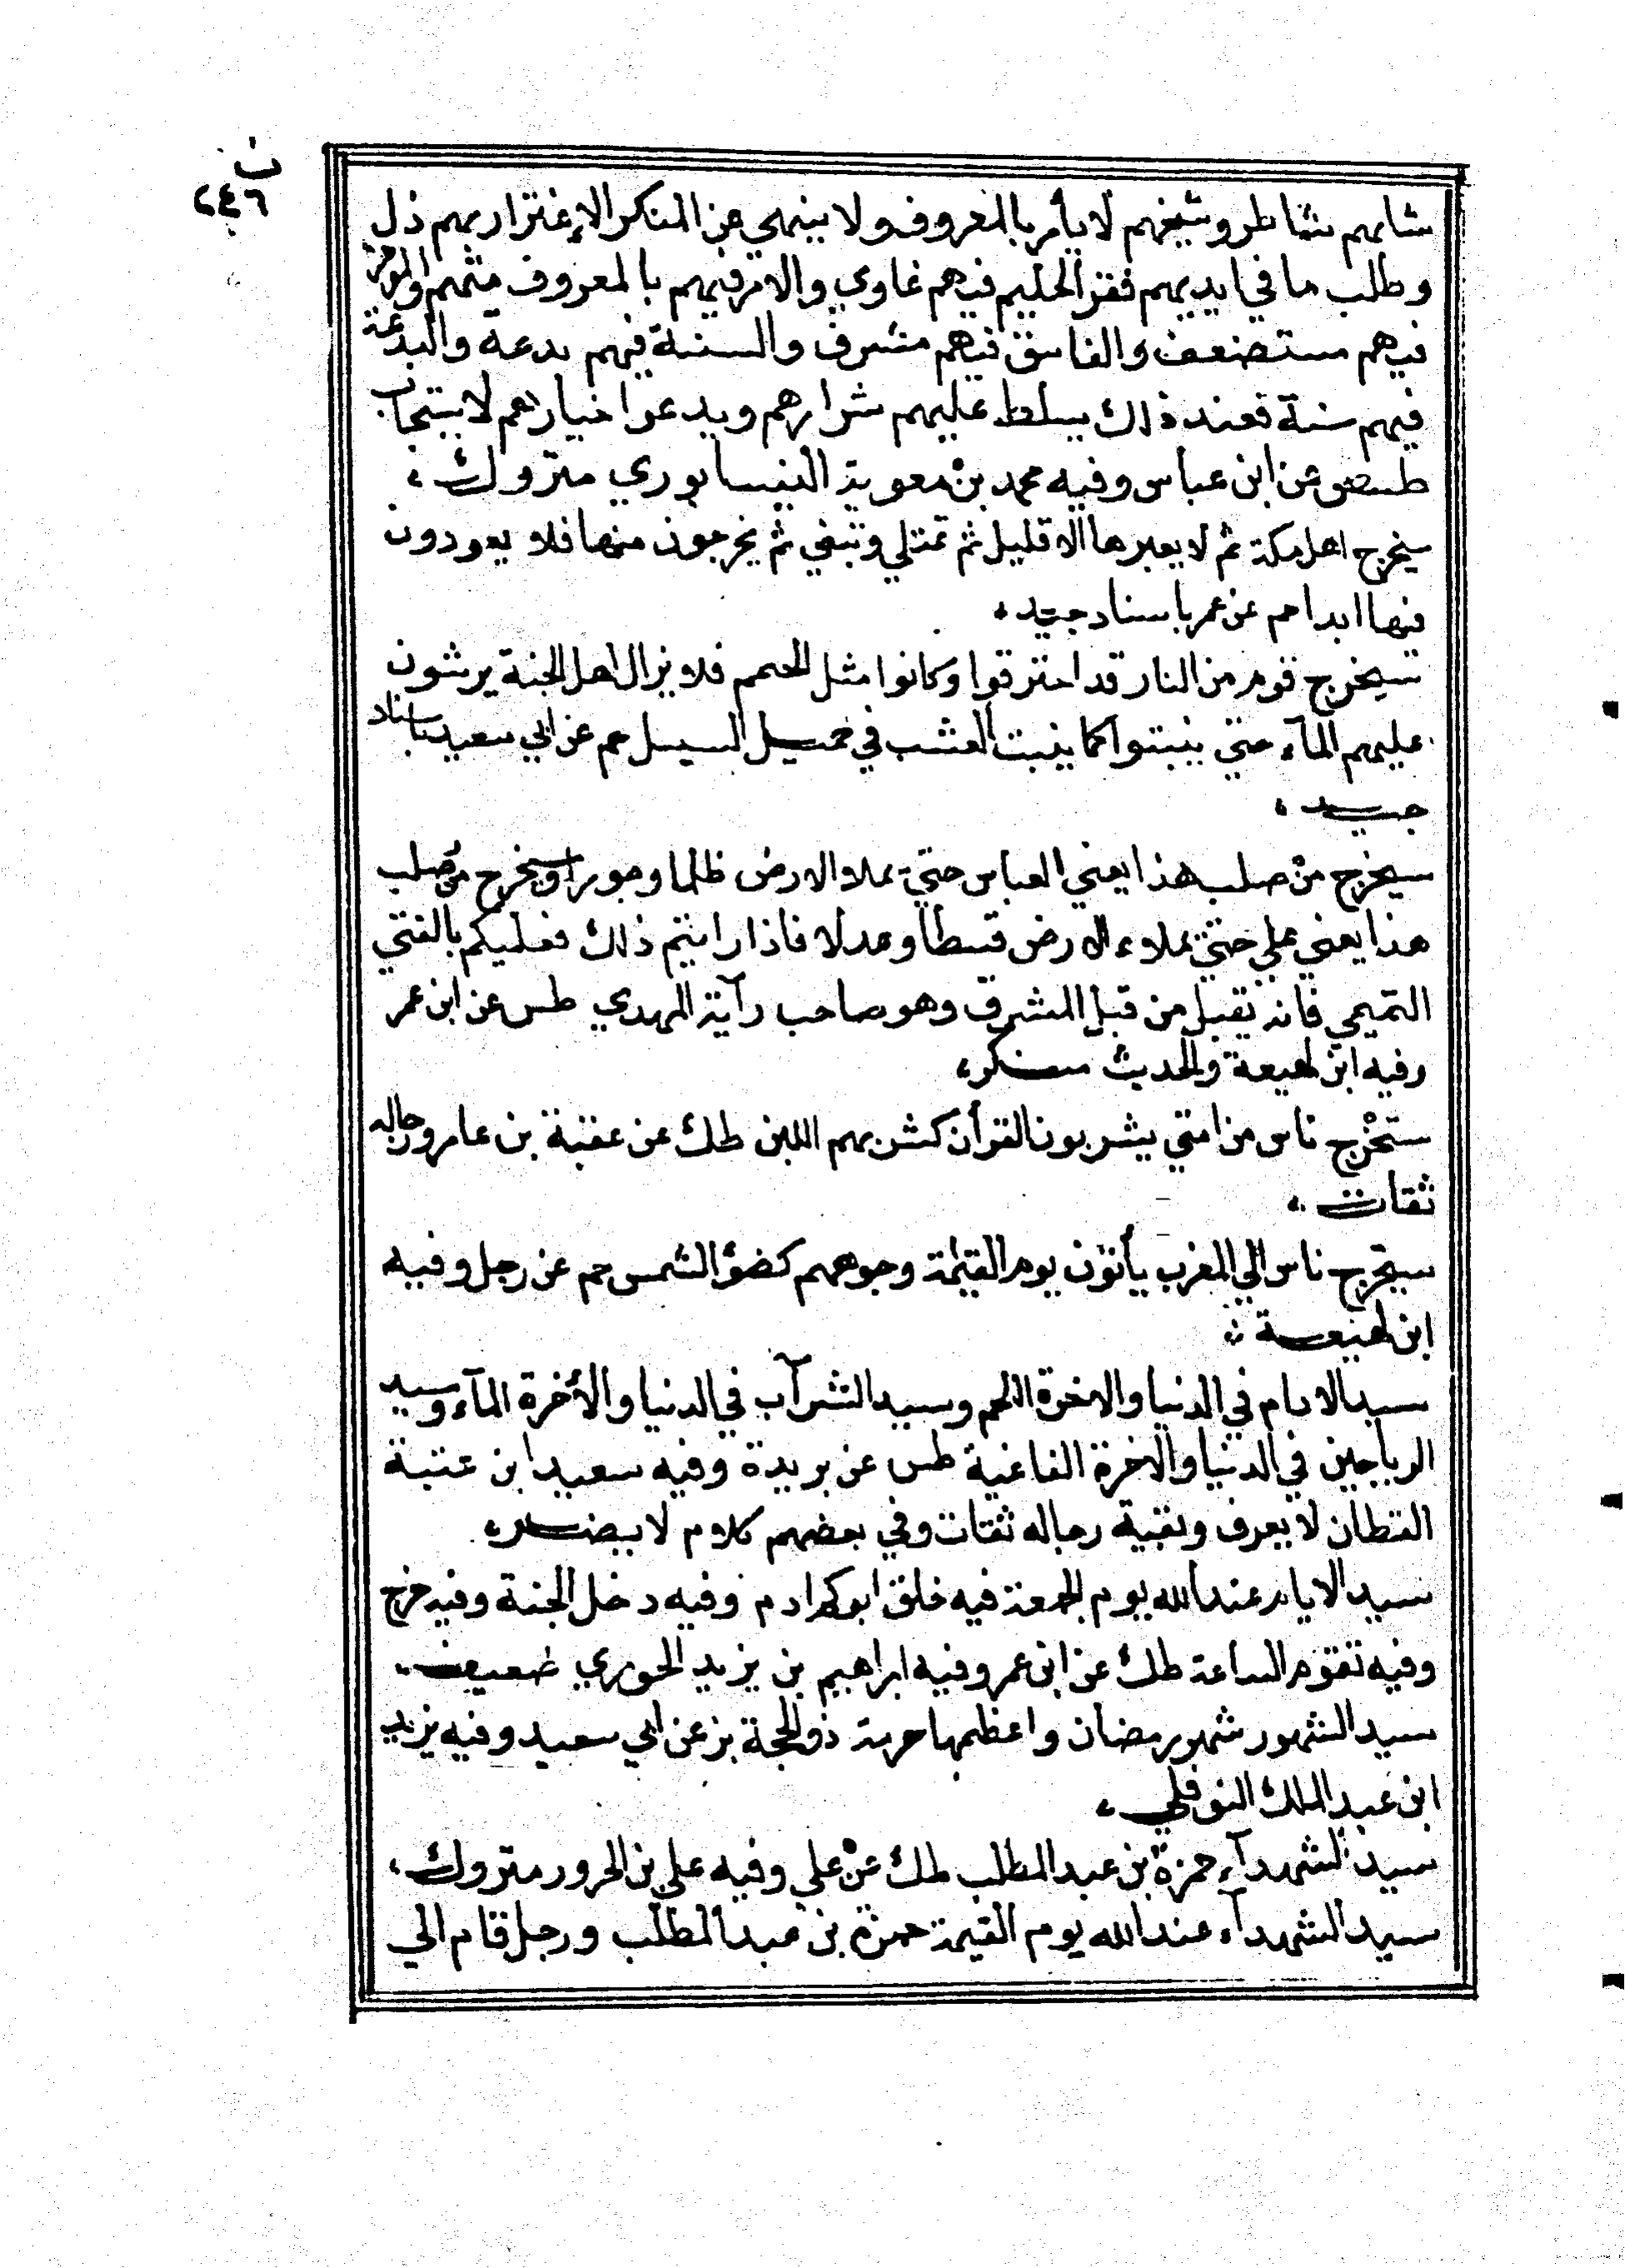 ب
٢٤٦
شابهم شاطر وشيخهم لا يأمر بالمعروف ولا ينهي عن المنكر الاغتزار بهم ذل
وطلب ما في ايديهم فقر الحليم فيهم غاوي والامر فيهم بالمعروف متهم والمومن
فيهم مستضعف والفاسق فيهم مشرف والسنة فيهم بدعة والبدعة
فيهم سنة فعند ذلك يسلط عليهم شرارهم ويدعوا خيارهم لا يستجاب
طسص عن ابن عباس وفيه محمد بن معوية النيسابوري متروك ،
سيخرج اهل مكة ثم لا يعبرها الا قليل ثم تمتلي وتبني ثم يخرجون منها فلا يعودون
فيها ابدا حم عن عمر باسناد جيد ،
سيخرج قوم من النار قد احترقوا وكانوا مثل الحمم فلا يزال اهل الجنة يرشون
عليهم المآء حتي ينبتوا كما ينبت العشب في حميل السيل حم عن ابي سعيد باسناد
جيد ،
سيخرج من صلب هذا يعني العباس حتي يملا الارض ظلما وجورا ويخرج من صلب
هذا يعني علي حتي يملاء الارض قسطا وعدلا فاذا رايتم ذلك فعليكم بالفتي
التميمي فانه يقبل من قبل المشرق وهو صاحب رآية المهدي طس عن ابن عمر
وفيه ابن لهيعة والحديث منكر ،
ستخرج ناس من امتي يشربون القرأن كشربهم اللبن طك عن عقبة بن عامر ورجاله
ثقات ،
سيخرج ناس الي المغرب يأتون يوم القيمة وجوههم كضوء الشمس حم عن رجل وفيه
ابن لهيعة ،
سيد الادام في الدنيا والاخرة اللحم وسيد الشرآب في الدنيا والأخرة المآء وسيد
الرياحين في الدنيا والاخرة الفاغية طس عن بريدة وفيه سعيد ابن عتبة
القطان لا يعرف وبقية رجاله ثقات وفي بعضهم كلام لا يضر ،
سيد الايام عند الله يوم الجمعة فيه خلق ابوكم ادم وفيه دخل الجنة وفيه خرج
وفيه تقوم الساعة طك عن ابن عمر وفيه ابراهيم بن يزيد الخوري ضعيف ،
سيد الشهور شهر رمضان واعظمها حرمة ذو الحجة بز عن ابي سعيد وفيه يزيد
ابن عبد الملك النوفلي ،
سيد الشهدآء حمزة بن عبد المطلب طك عن علي وفيه علي بن الحرور متروك ،
سيد الشهدآء عند الله يوم القيمة حمزة بن عبد المطلب ورجل قام الي